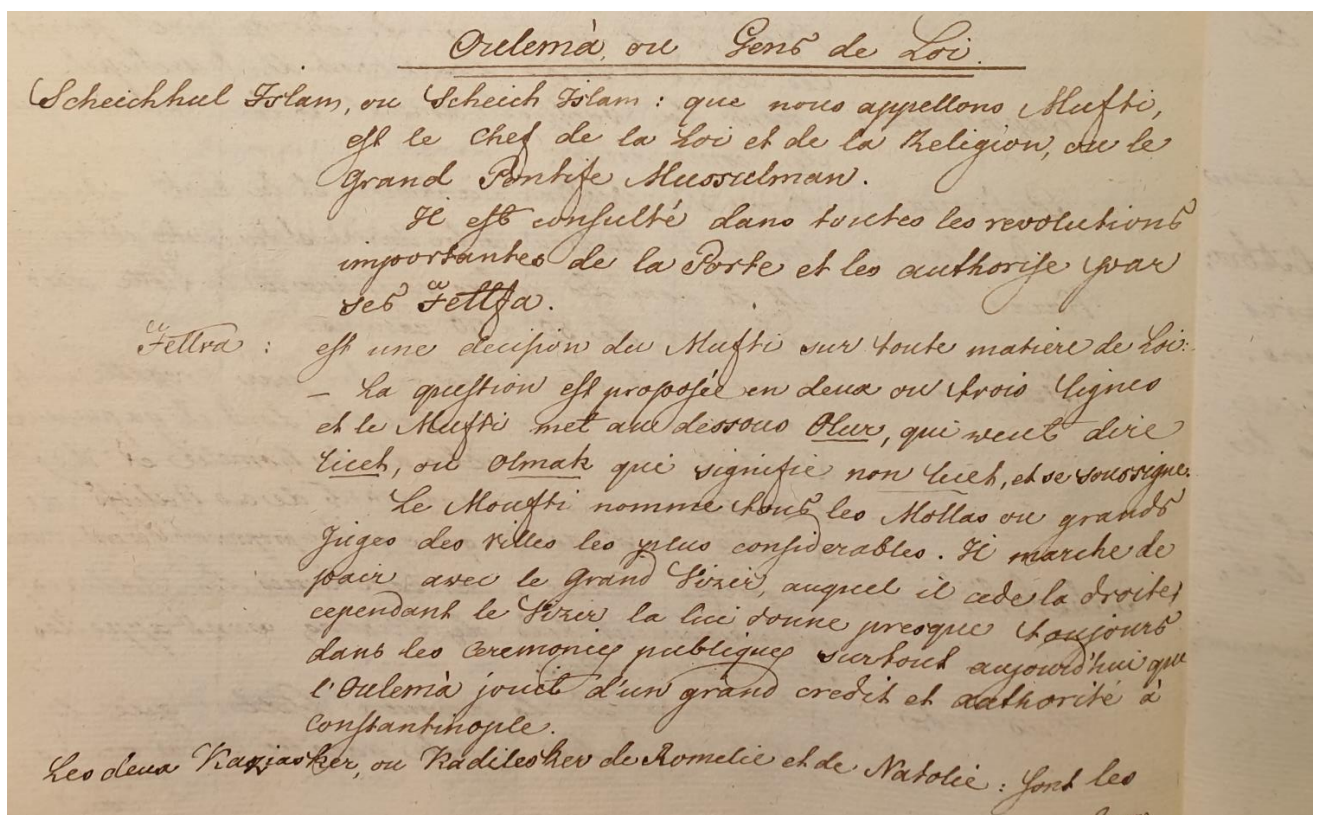 Oulemà, ou Gens de Loi.
Scheichhul Islam, ou Scheich Islam : que nous appellons Mufti,
est le Chef de la Loi et de la Religion, ou le
Grand Pontife Mussulman.
Il est consulté dans toutes les revolutions
importantes de la Porte et les authorise par
ses Fettfa.
Fettva : est une decision du Mufti sur toute matiere de Loi:
– La question est proposée en deux ou trois lignes
et le Mufti met au dessous Olur, qui veut dire
licet, ou Olmak qui signifie non licet, et se soussigne.
Le Moufti nomme tous les Mollas ou grands
Juges des Villes les plus considerables. Il marche de
pair avec le Grand Vizir, auquel il cede la droite,
cependant le Vizir la lui donne presque toujours
dans les Ceremonies publiques surtout aujourd'hui que
l'Oulemà jouit d'un grand credit et authorité à
Constantinople.
Les deux Kazjasker, ou Kadilesker de Romelie et de Natolie : sont les